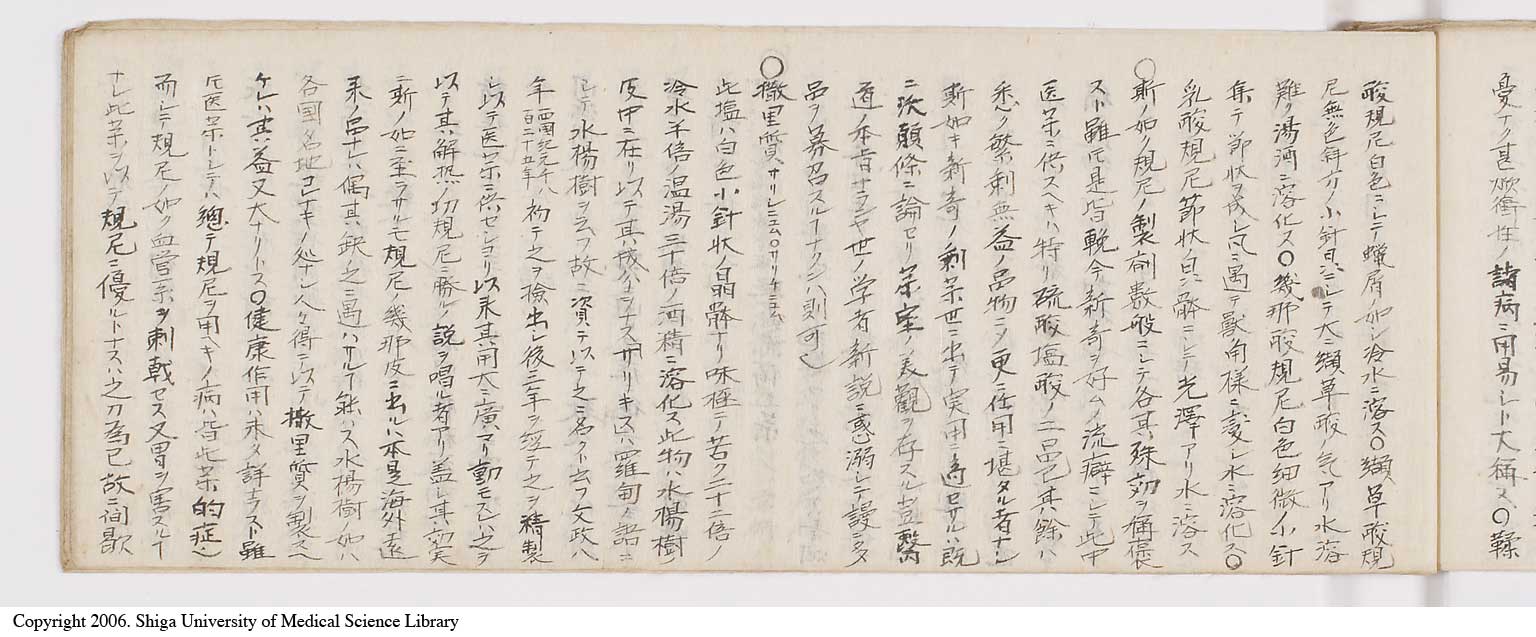 憂ナク甚焮衝性ノ諸病ニ用易シト大称ス〇鞣
酸規尼白色ニシテ蠟屑ノ如シ冷水ニ溶ス〇纈草酸規
尼無色斜方ノ小針晶ニシテ大ニ纈草酸ノ気アリ水溶
難ク湯酒ニ溶化ス〇幾那酸規尼白色細微小針
集テ節状ヲ成シ火ニ遇テ獣角様ニ変シ水ニ溶化ス〇
乳酸規尼節状白骸ニシテ光澤アリ水ニ溶ス
〇斯ノ如ク規尼ノ製剤数般ニシテ各其殊効ヲ稱張
スト雖𪜈是皆輓今新奇ヲ好ムノ流癖ニシテ此中
医薬ニ供スベキハ特リ硫酸塩酸ノ二品已其餘ハ
悉ク繁剰無益ノ品物ニメ更ニ任用ニ堪タル者ナシ
斯如キ新奇ノ剰薬世ニ出テ実用ニ適セサルハ既
ニ次顛條ニ論セリ薬室ノ美観ヲ存スル豈醫
道ノ本旨ナランヤ世ノ学者新説ニ惑溺シテ謾ニ多
品ヲ募召スルナクンハ則可也
〇撒里質サリシニユム〇サリケニユム
此塩ハ白色小針状ノ晶骸ナリ味極テ苦ク二十二倍ノ
冷水半倍ノ温湯三十倍ノ酒精ニ溶化ス此物ハ水楊樹
皮中ニ在リ以テ其機分ヲナス サリキスハ羅甸ノ語ニ
シテ水楊樹ヲ云フ故ニ資テ以テ之ニ名クト云フ文政八
年西国紀元千八百二十五年初テ之ヲ検出シ後三年ヲ經テ之ヲ精製
シ以テ医薬ニ供セシヨリ以来其用大ニ廣マリ動モスレハ之ヲ
以テ其解热功規尼ニ勝ルノ説ヲ唱ル者アリ蓋シ其功実
ニ斯ノ如ニ至ラサルモ規尼ノ幾那皮ニ出ルハ本是海外遠
来ノ品ナレハ偶其缺乏ニ遇ハサルヿ能ハス水楊樹ノ如ハ
各国名地コレナキノ処ナシ人々得テ以テ撒里質ヲ製スヘ
ケレハ其益又大ナリトス〇健康作用ハ未タ詳ナラスト雖
𪜈医薬トシテハ總テ規尼ヲ用ヘキノ病ハ皆此薬的症也
而シテ規尼ノ如ク血管系ヲ刺戟セス又胃ヲ害スルヿ
ナシ此薬ヲ以テ規尼ニ優ルトナスハ之カ為已故ニ间歇